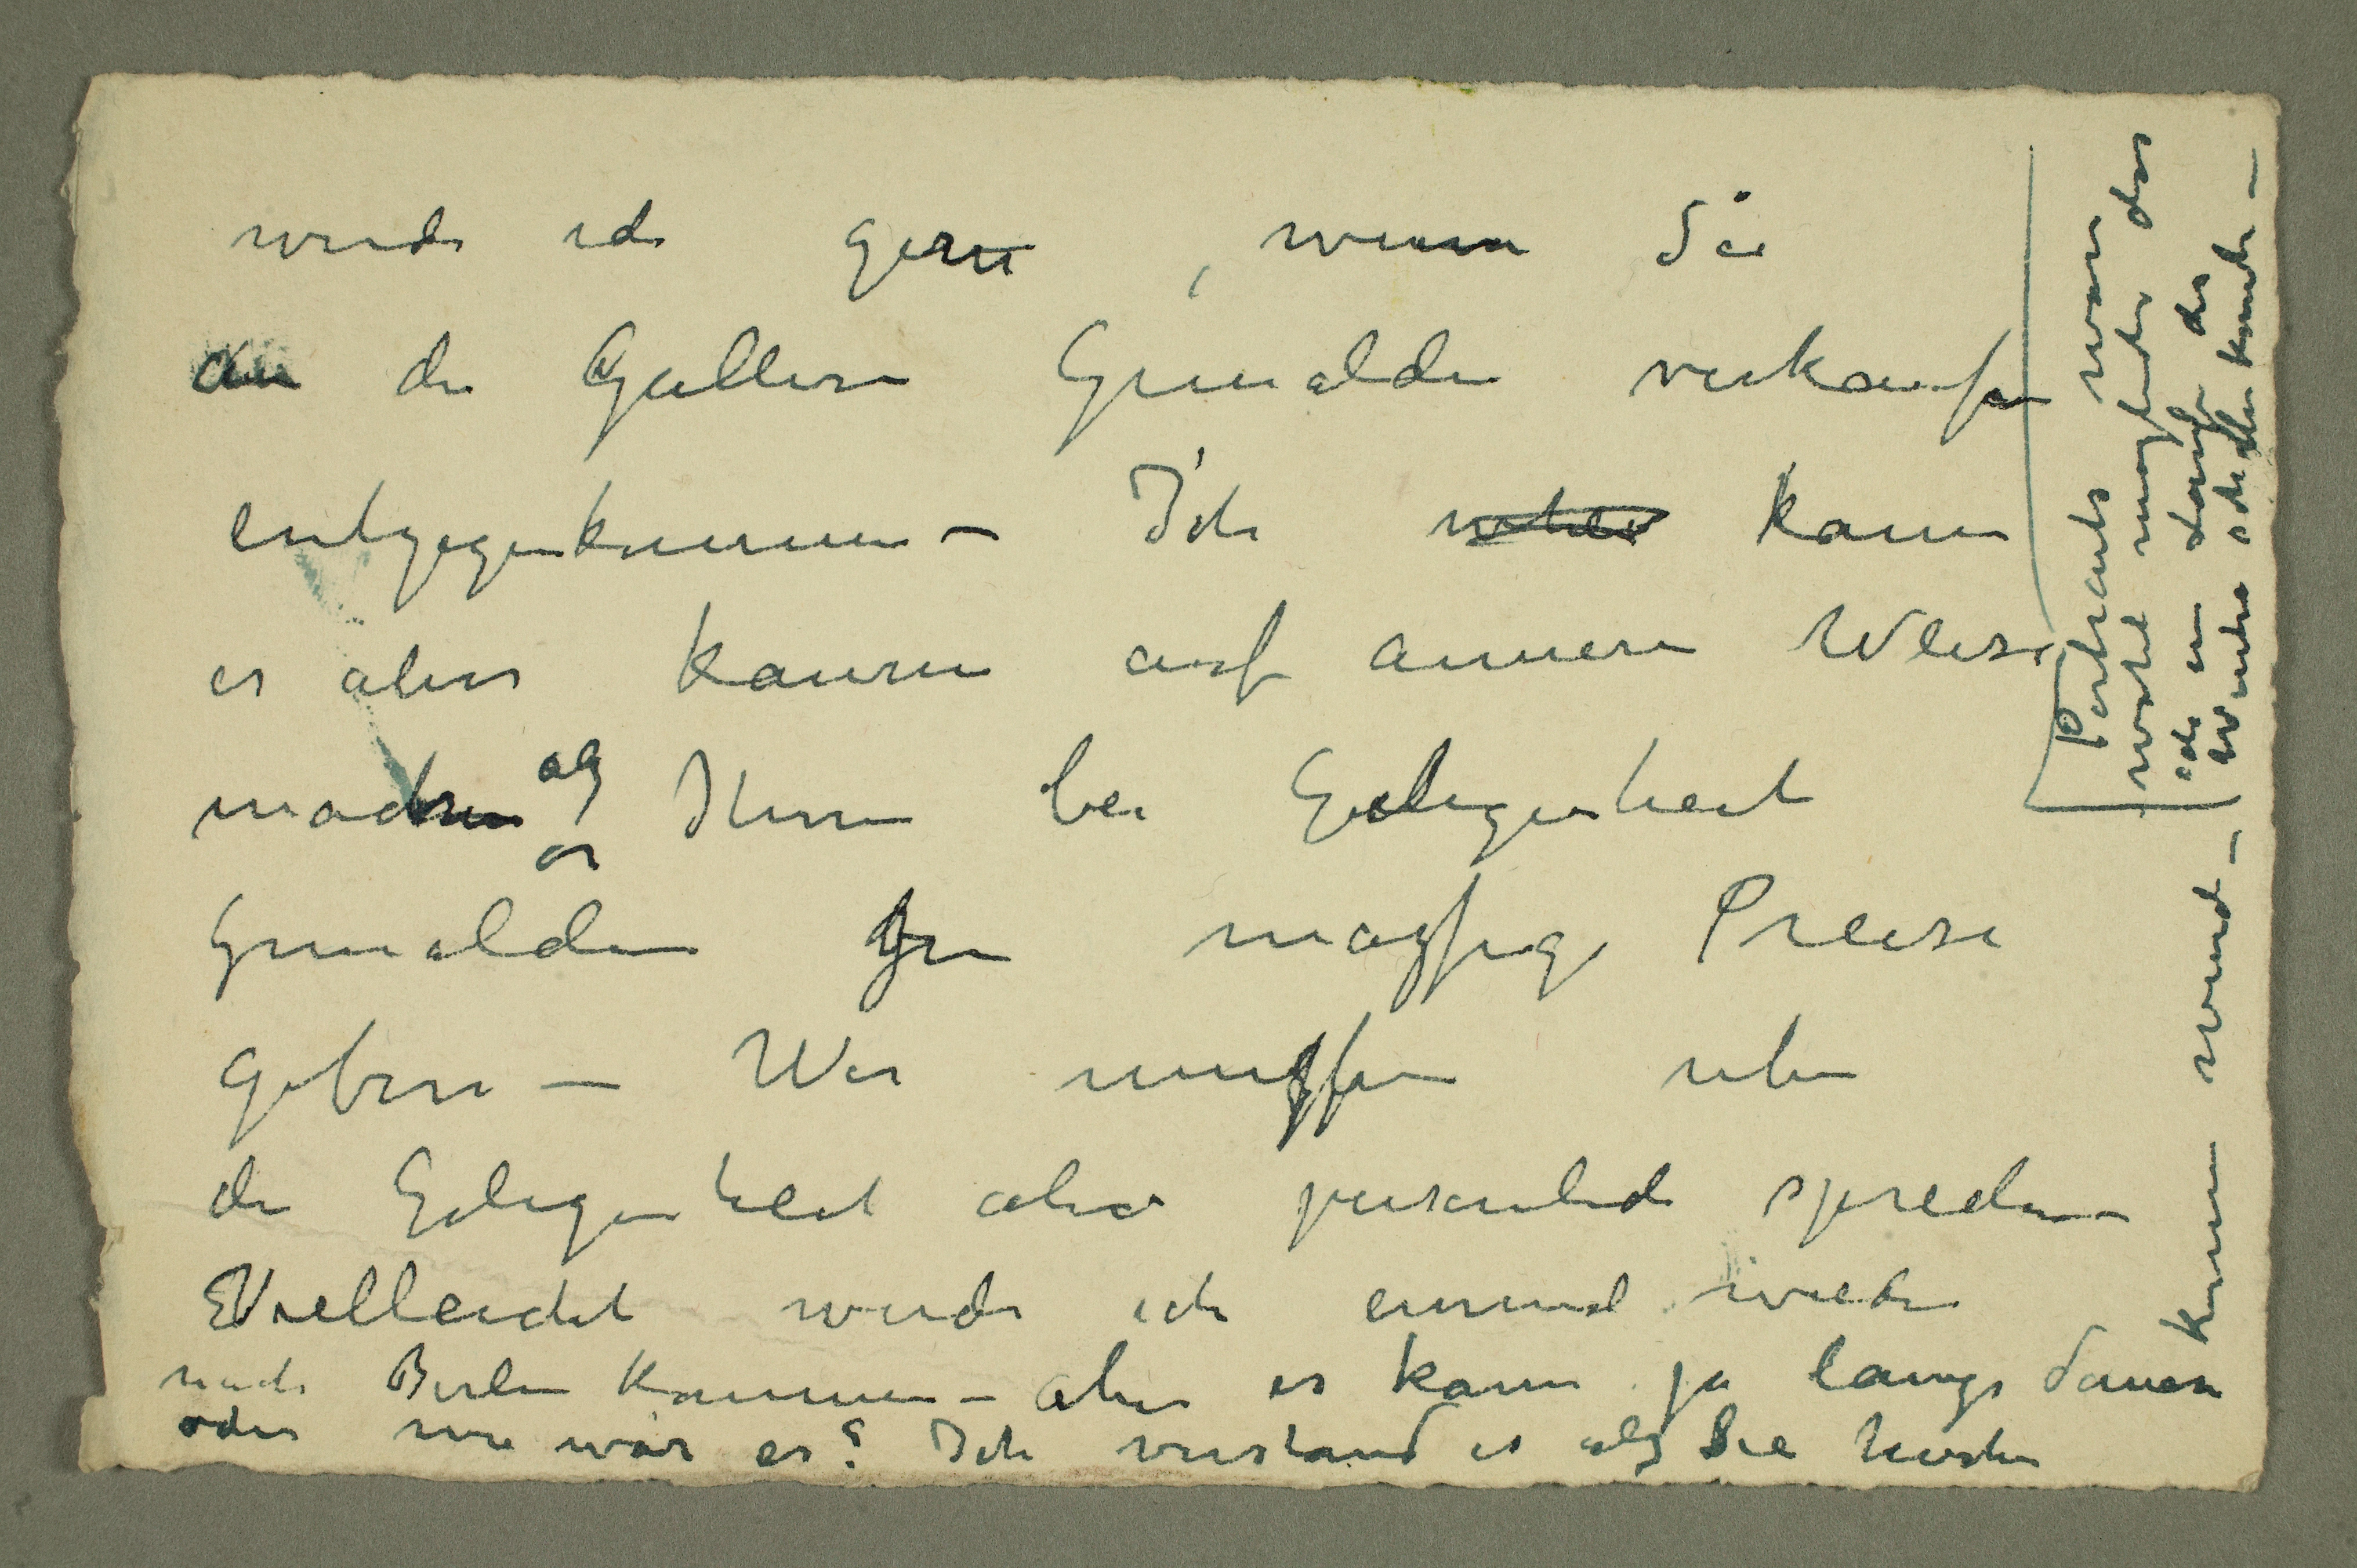 werde ich gern, wenn Sie
an die Gallerie Gemälden verkaufen
entgegenkommen – Ich kann
es aber kaum auf annere Weise
machen als Ihnen bei Gelegenheit
Gemälden zu maszsige Preise
geben – Wir muszsen uber
die Gelegenheit aber personlich sprechen
Vielleicht werde ich einmal wieder
nach Berlin kommen – aber es kann ja lange dauern
oder wie wär es? Ich verstand es als Sie hierher
kommen würde –
Portraits wäre das
wohl